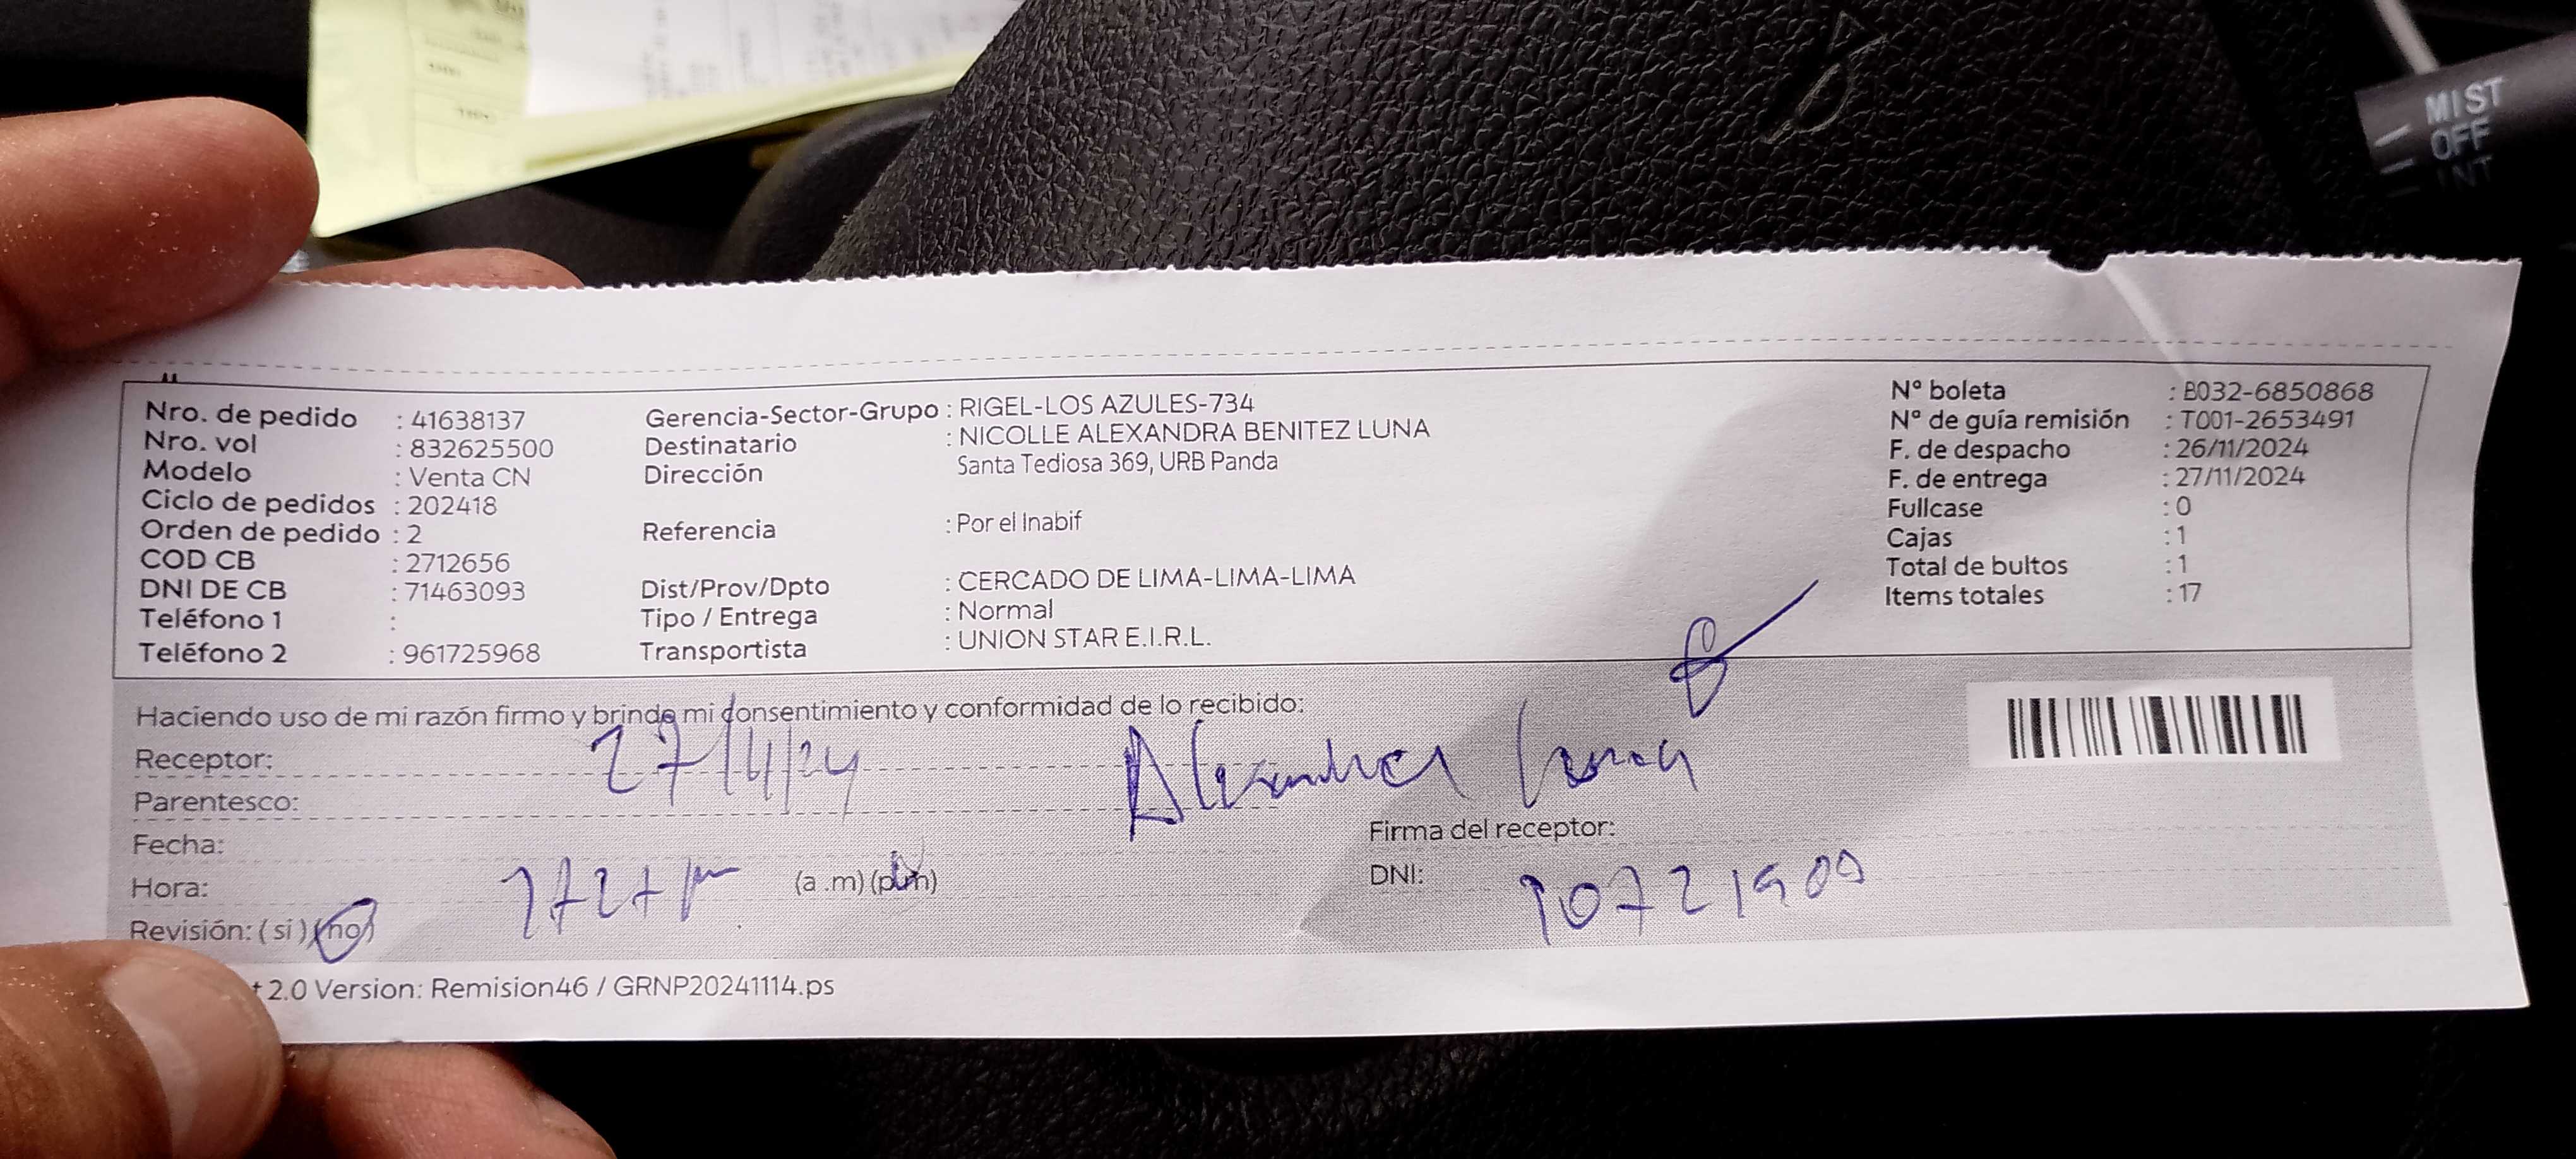 MIST
OFF
INT
Nro. de pedido : 41638137
Nro. vol : 832625500
Modelo : Venta CN
Ciclo de pedidos : 202418
Orden de pedido : 2
COD CB : 2712656
DNI DE CB : 71463093
Teléfono 1 :
Teléfono 2 : 961725968
Gerencia-Sector-Grupo : RIGEL-LOS AZULES-734
Destinatario : NICOLLE ALEXANDRA BENITEZ LUNA
Dirección Santa Tediosa 369, URB Panda
Referencia : Por el Inabif
Dist/Prov/Dpto : CERCADO DE LIMA-LIMA-LIMA
Tipo / Entrega : Normal
Transportista : UNION STAR E.I.R.L.
N° boleta : B032-6850868
N° de guía remisión : T001-2653491
F. de despacho : 26/11/2024
F. de entrega : 27/11/2024
Fullcase : 0
Cajas : 1
Total de bultos : 1
Items totales : 17
Haciendo uso de mi razón firmo y brindo mi consentimiento y conformidad de lo recibido:
Receptor: 27/11/24 Alexandra Luna
Parentesco:
Fecha:
Firma del receptor:
Hora: (a .m) (p.m)
DNI: 10721909
Revisión: ( si ) (no)
t 2.0 Version: Remision46 / GRNP20241114.ps